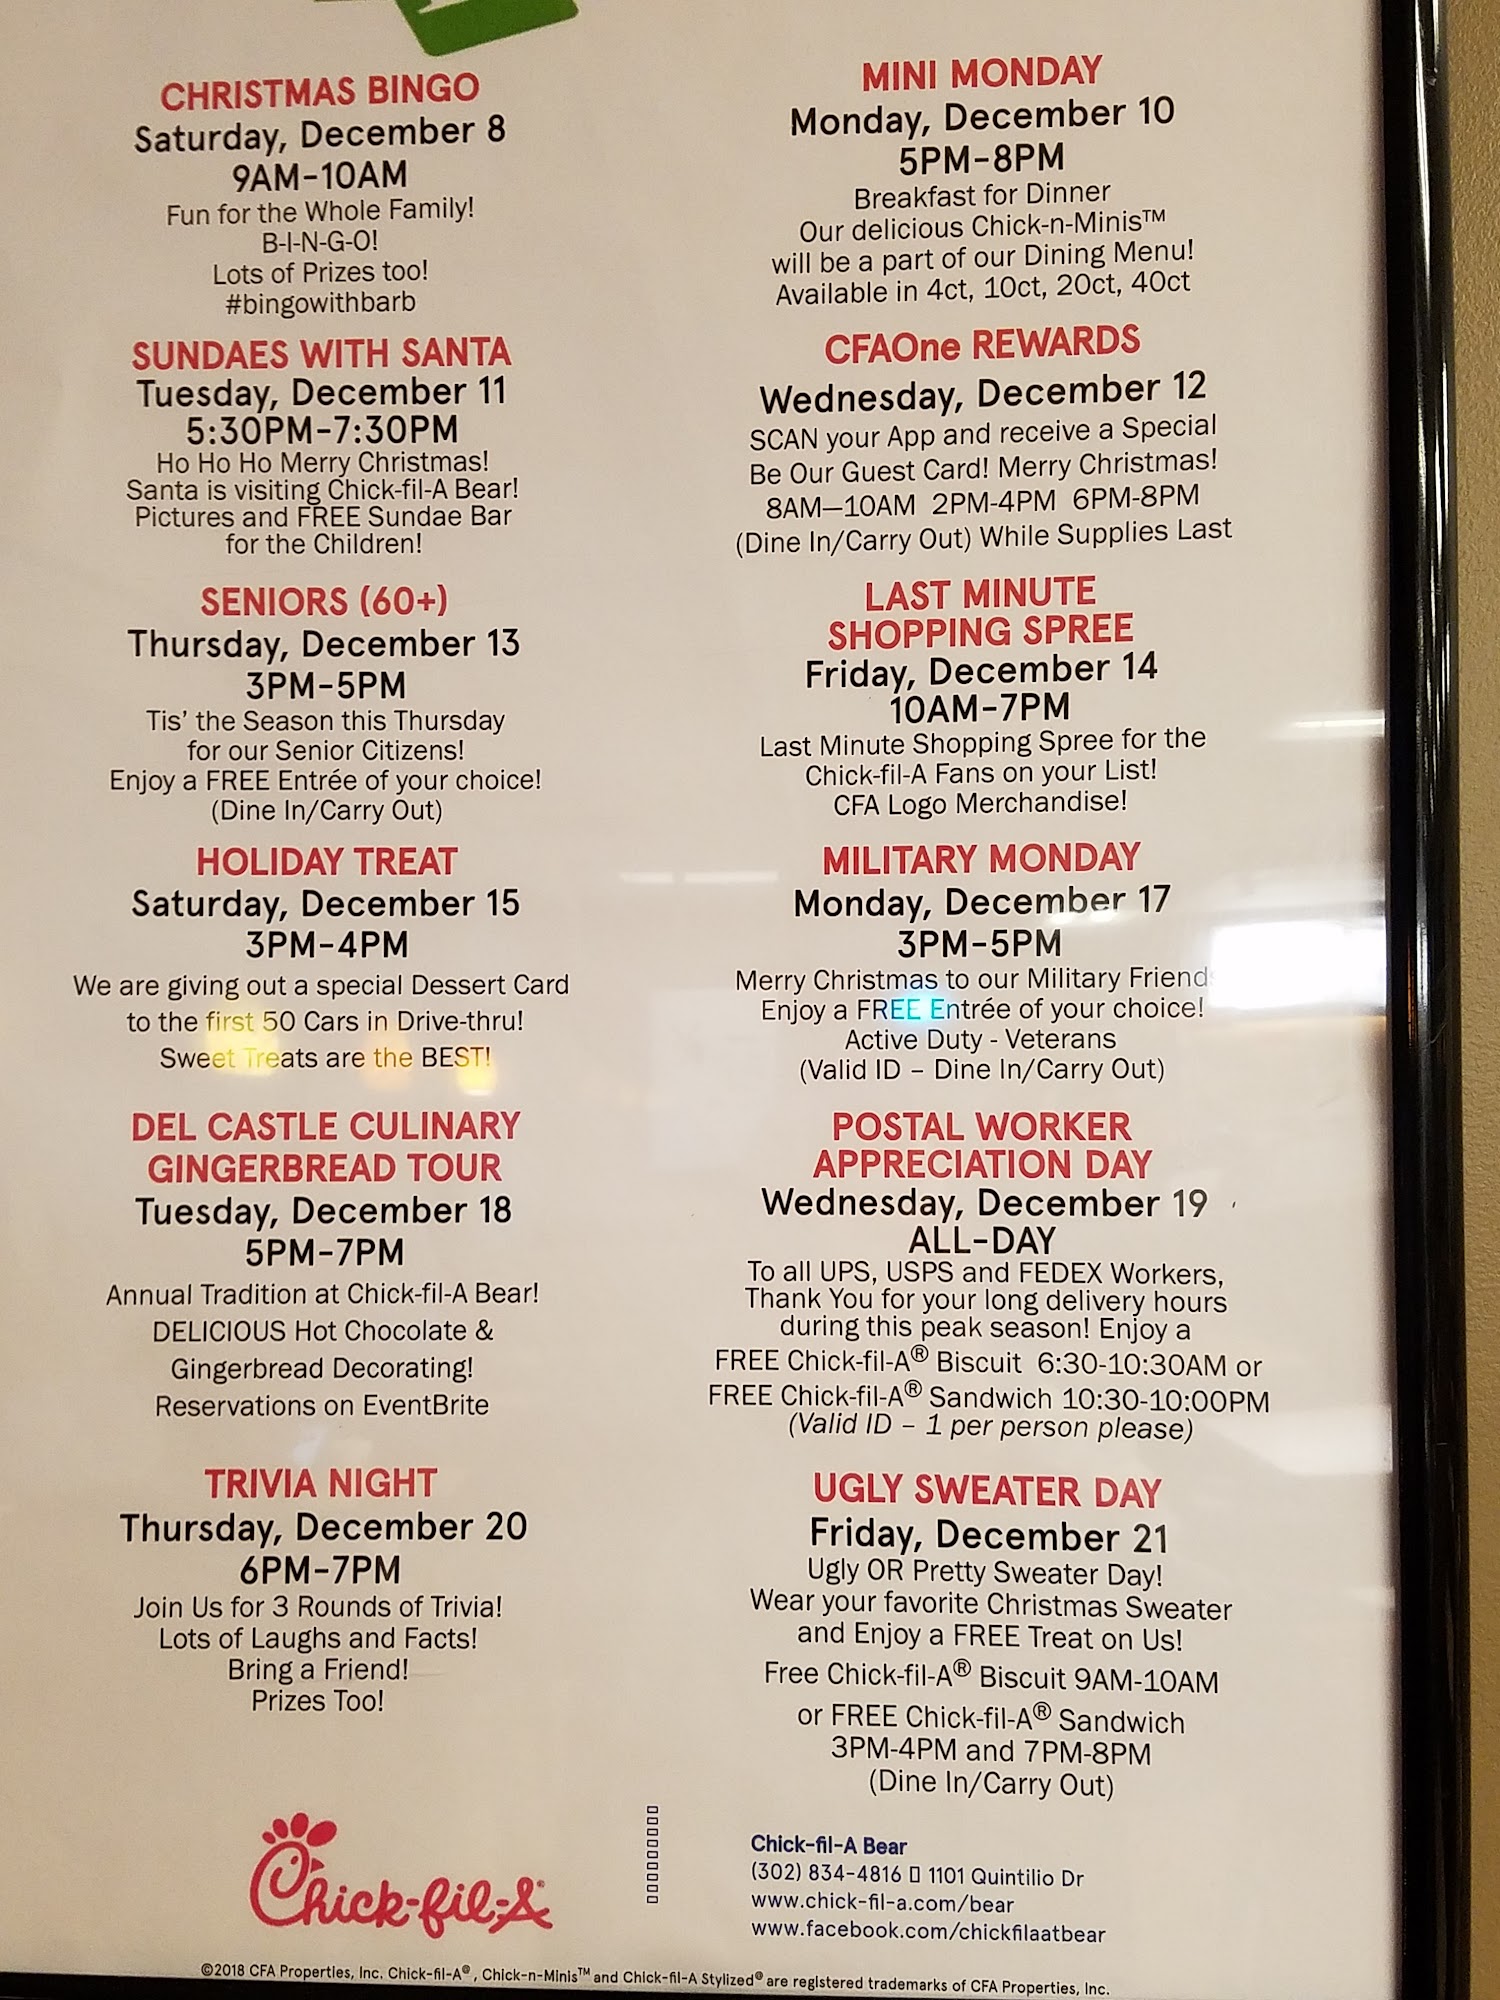 CHRISTMAS BINGO
Saturday, December 8
9AM-10AM
Fun for the Whole Family!
B-I-N-G-O!
Lots of Prizes too!
#bingowithbarb
SUNDAES WITH SANTA
Tuesday, December 11
5:30PM-7:30PM
Ho Ho Ho Merry Christmas!
Santa is visiting Chick-fil-A Bear!
Pictures and FREE Sundae Bar
for the Children!
SENIORS (60+)
Thursday, December 13
3PM-5PM
Tis' the Season this Thursday
for our Senior Citizens!
Enjoy a FREE Entrée of your choice!
(Dine In/Carry Out)
HOLIDAY TREAT
Saturday, December 15
3PM-4PM
We are giving out a special Dessert Card
to the first 50 Cars in Drive-thru!
Sweet Treats are the BEST!
DEL CASTLE CULINARY
GINGERBREAD TOUR
Tuesday, December 18
5PM-7PM
Annual Tradition at Chick-fil-A Bear!
DELICIOUS Hot Chocolate &
Gingerbread Decorating!
Reservations on EventBrite
TRIVIA NIGHT
Thursday, December 20
6PM-7PM
Join Us for 3 Rounds of Trivia!
Lots of Laughs and Facts!
Bring a Friend!
Prizes Too!
MINI MONDAY
Monday, December 10
5PM-8PM
Breakfast for Dinner
Our delicious Chick-n-Minis™
will be a part of our Dining Menu!
Available in 4ct, 10ct, 20ct, 40ct
CFAOne REWARDS
Wednesday, December 12
SCAN your App and receive a Special
Be Our Guest Card! Merry Christmas!
8AM—10AM 2PM-4PM 6PM-8PM
(Dine In/Carry Out) While Supplies Last
LAST MINUTE
SHOPPING SPREE
Friday, December 14
10AM-7PM
Last Minute Shopping Spree for the
Chick-fil-A Fans on your List!
CFA Logo Merchandise!
MILITARY MONDAY
Monday, December 17
3PM-5PM
Merry Christmas to our Military Friends
Enjoy a FREE Entrée of your choice!
Active Duty - Veterans
(Valid ID – Dine In/Carry Out)
POSTAL WORKER
APPRECIATION DAY
Wednesday, December 19
ALL-DAY
To all UPS, USPS and FEDEX Workers,
Thank You for your long delivery hours
during this peak season! Enjoy a
FREE Chick-fil-A® Biscuit 6:30-10:30AM or
FREE Chick-fil-A® Sandwich 10:30-10:00PM
(Valid ID – 1 per person please)
UGLY SWEATER DAY
Friday, December 21
Ugly OR Pretty Sweater Day!
Wear your favorite Christmas Sweater
and Enjoy a FREE Treat on Us!
Free Chick-fil-A® Biscuit 9AM-10AM
or FREE Chick-fil-A® Sandwich
3PM-4PM and 7PM-8PM
(Dine In/Carry Out)
Chick-fil-A®
Chick-fil-A Bear
(302) 834-4816 ▯ 1101 Quintilio Dr
www.chick-fil-a.com/bear
www.facebook.com/chickfilaatbear
©2018 CFA Properties, Inc. Chick-fil-A®, Chick-n-Minis™ and Chick-fil-A Stylized® are registered trademarks of CFA Properties, Inc.